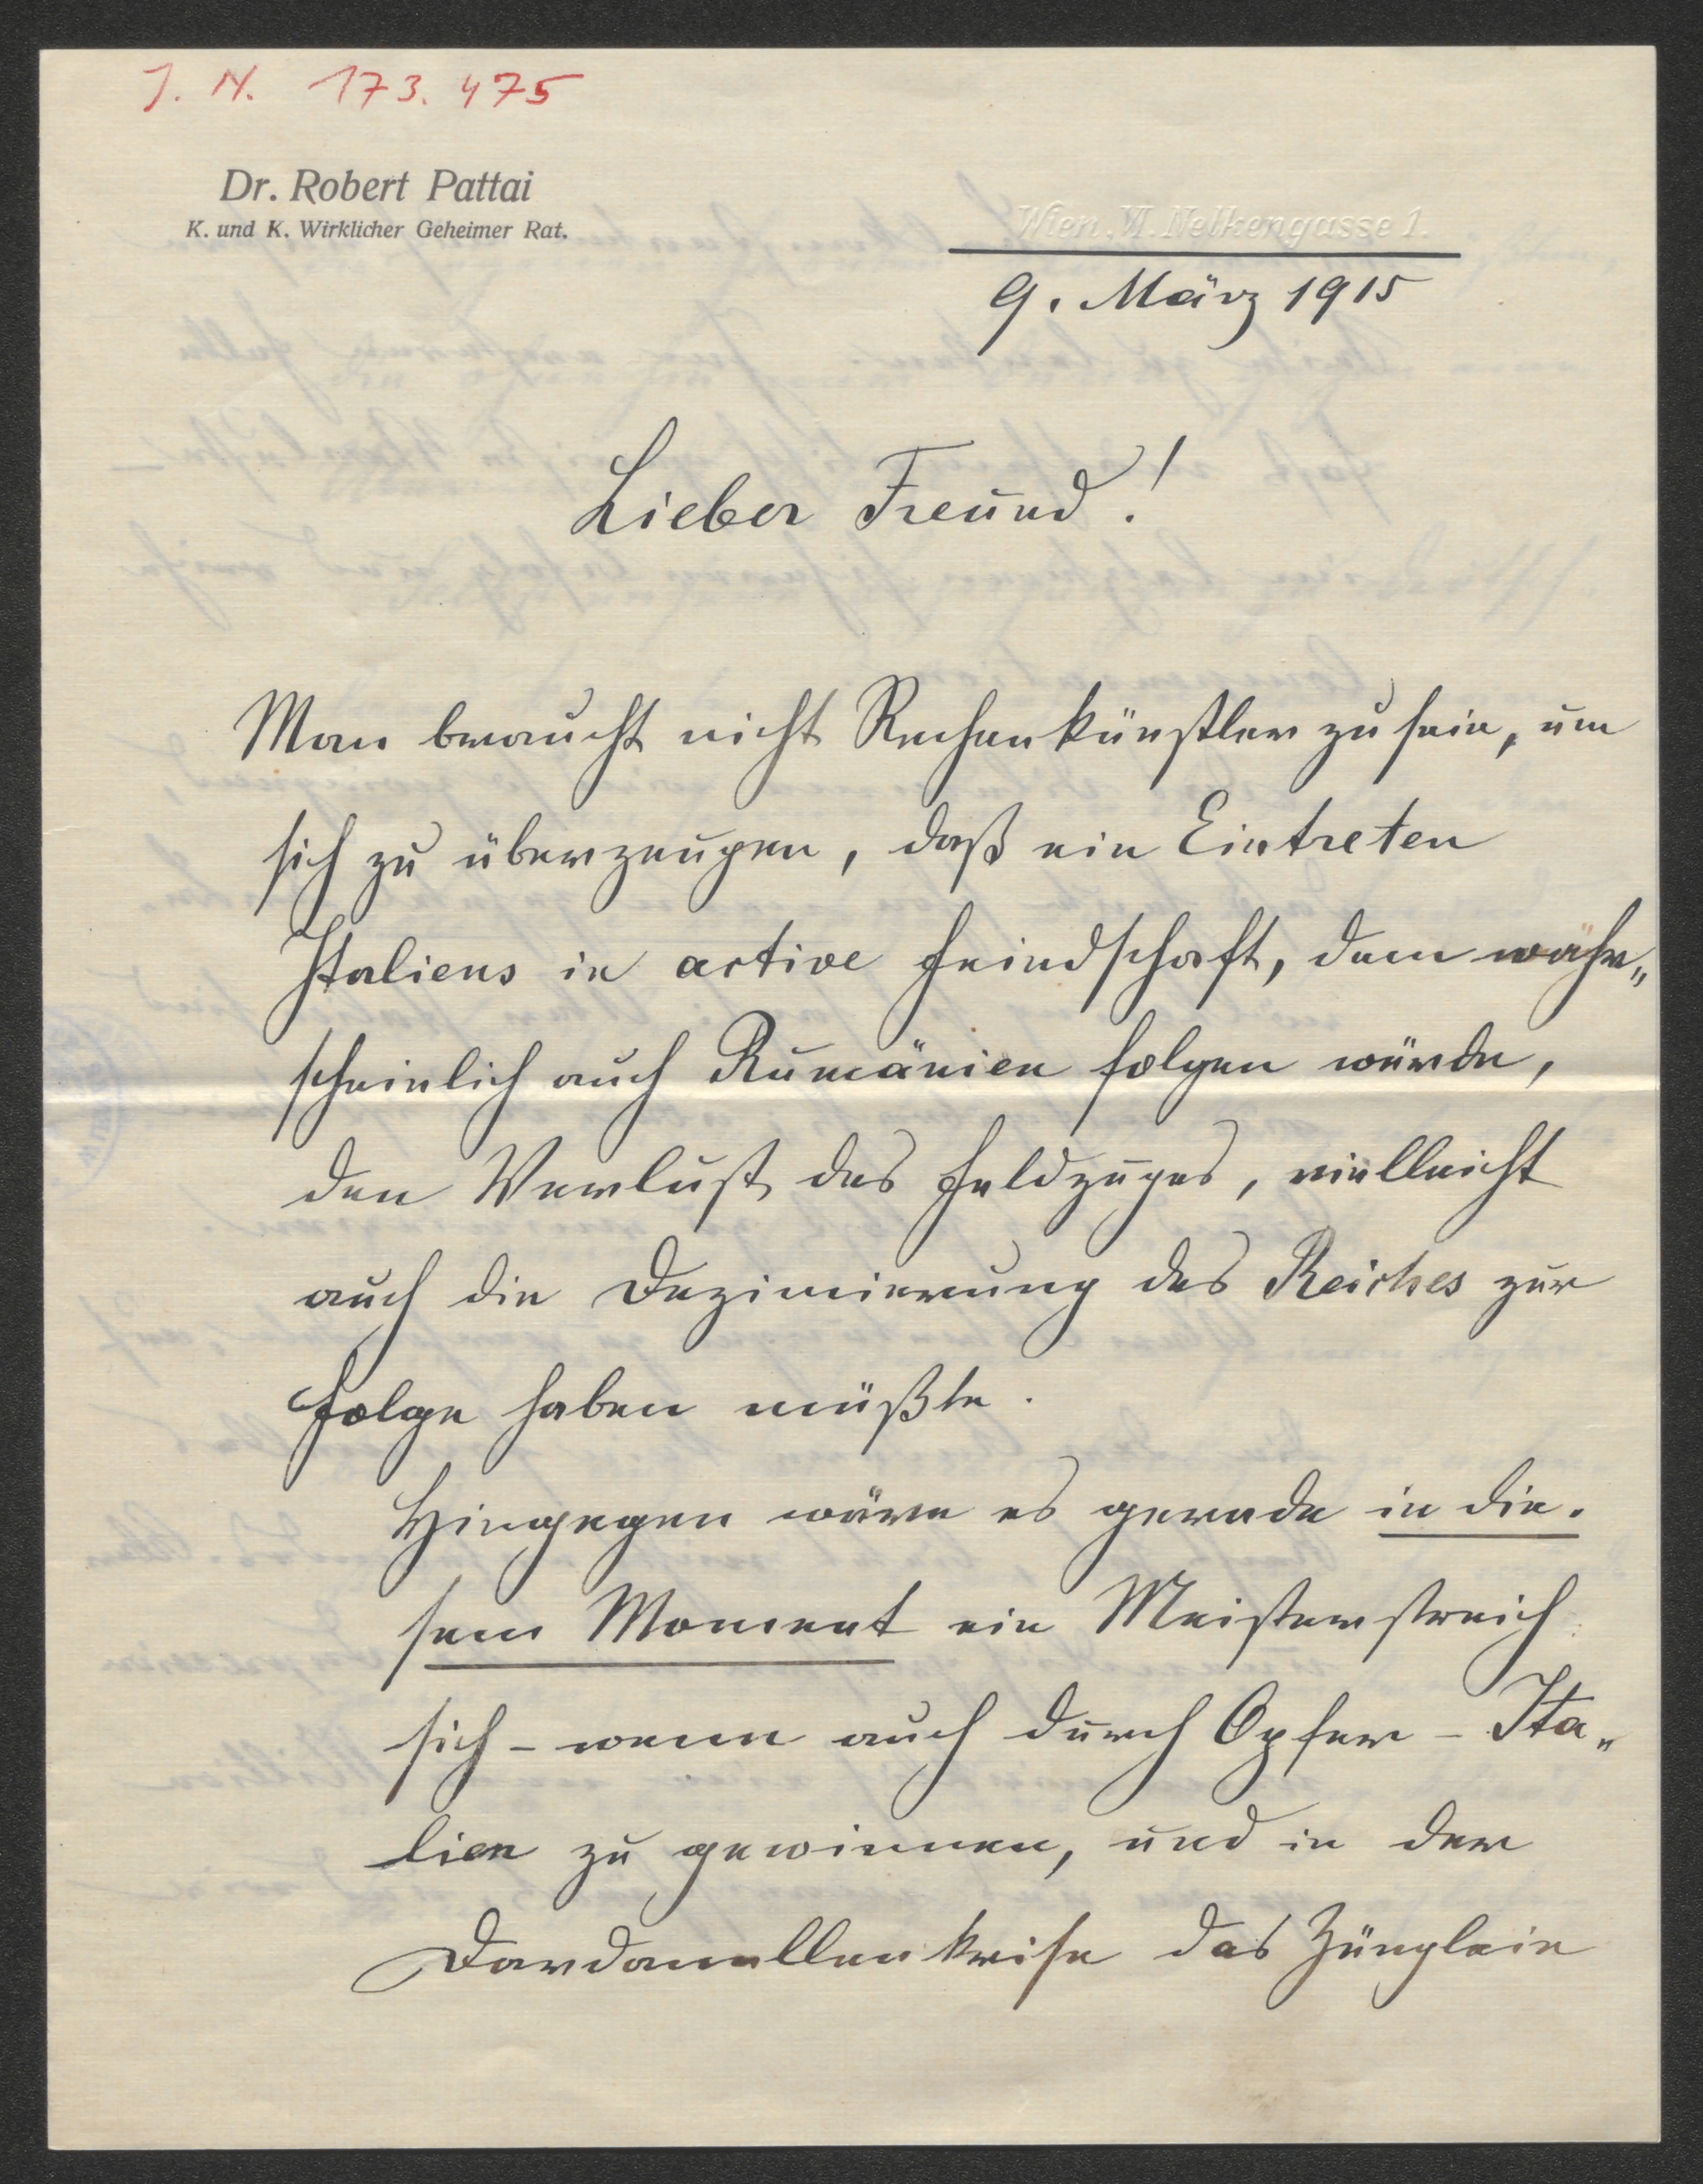 J. N. 173.475
Dr. Robert Pattai
K. und K. Wirklicher Geheimer Rat.
Wien, VI. Nelkengasse 1.
9. März 1915
Lieber Freund!
Man braucht nicht Rechenkünstler zu sein, um
sich zu überzeugen, daß ein Eintreten
Italiens in active Feindschaft, dem wahr„
scheinlich auch Rumänien folgen würde,
den Verlust des Feldzuges, vielleicht
auch die Dezimierung des Reiches zur
Folge haben müßte.
Hingegen wäre es gerade in die-
sem Moment ein Meisterstreich
sich – wenn auch durch Opfer – Ita„
lien zu gewinnen, und in der
Dardanellenkrise das Zünglein